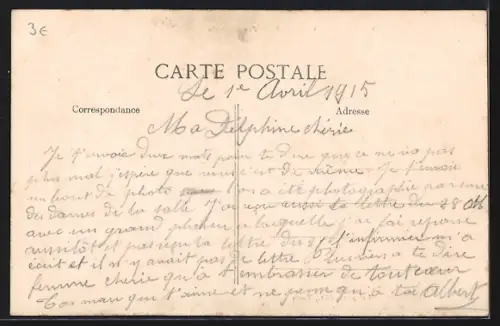 3€
CARTE POSTALE
Le 1e Avril 1915
Correspondance
Adresse
Ma Delphine chérie
Je t'envoie deux mots pour te dire que ce ne va pas
plus mal j'espère que vous c'est de même Je t'envoie
un bout de photo on a été photographié par une
des dames de la salle J'ai reçu aussi ta lettre du 28
avec un grand plaisir a laquelle j'ai fai reponse
aussitôt et pas reçu la lettre du l'infirmier m'a
écrit et il n'y avait pas de lettre a te dire
femme cherie qu'à t'embrasser de tout cœur
Ton mari qui t'aime et ne pense qu'à toi Albert